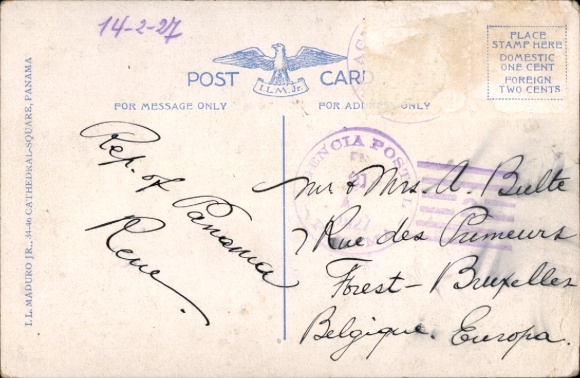 14-2-27
POST CARD
I.L.M. Jr.
PLACE
STAMP HERE
DOMESTIC
ONE CENT
FOREIGN
TWO CENTS
FOR MESSAGE ONLY
FOR ADDRESS ONLY
I. L. MADURO JR., 44-46 CATHEDRAL-SQUARE, PANAMA
Rep. of Panama
Rene.
AGENCIA POSTAL
Mr & Mrs. A. Bulte
7 Rue des Primeurs
Forest-Bruxelles
Belgique. Europa.